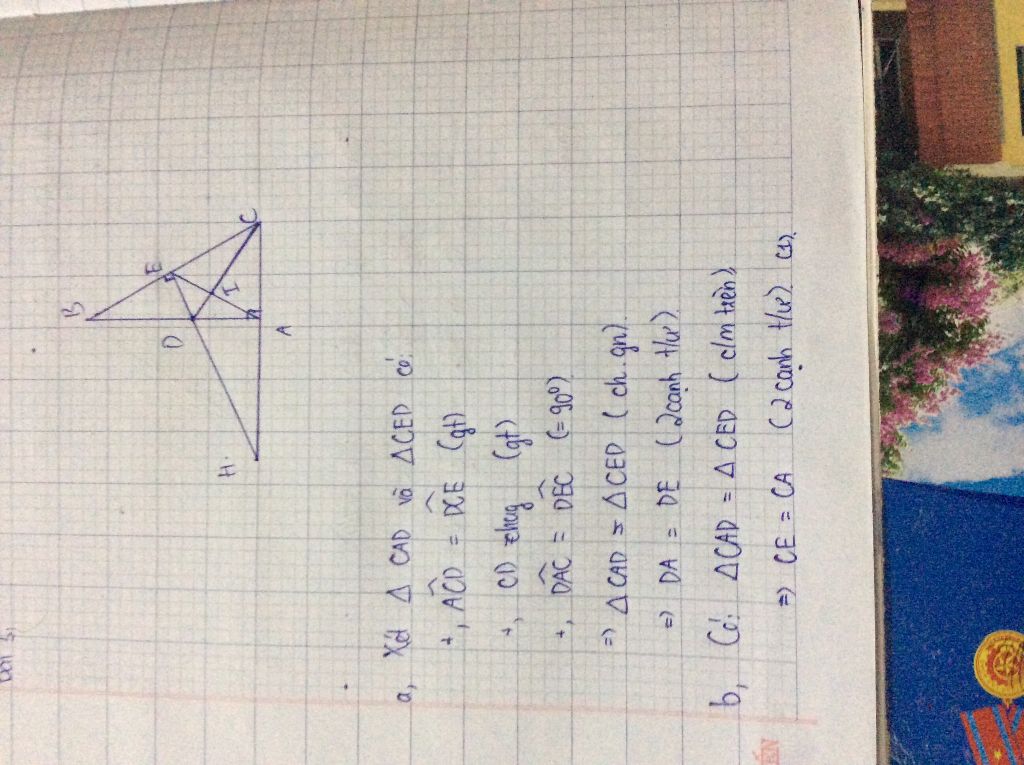 B
E
D
I
C
H
A
a, Xét Δ CAD và ΔCED có:
+, ACD = DCE (gt)
+, CD chug (gt)
+, DAC = DEC (= 90°)
=> Δ CAD = Δ CED (ch. gn)
=> DA = DE (2 cạnh t/ư)
b, Có: ΔCAD = Δ CED (c/m trên)
=> CE = CA (2 cạnh t/ư) (1)